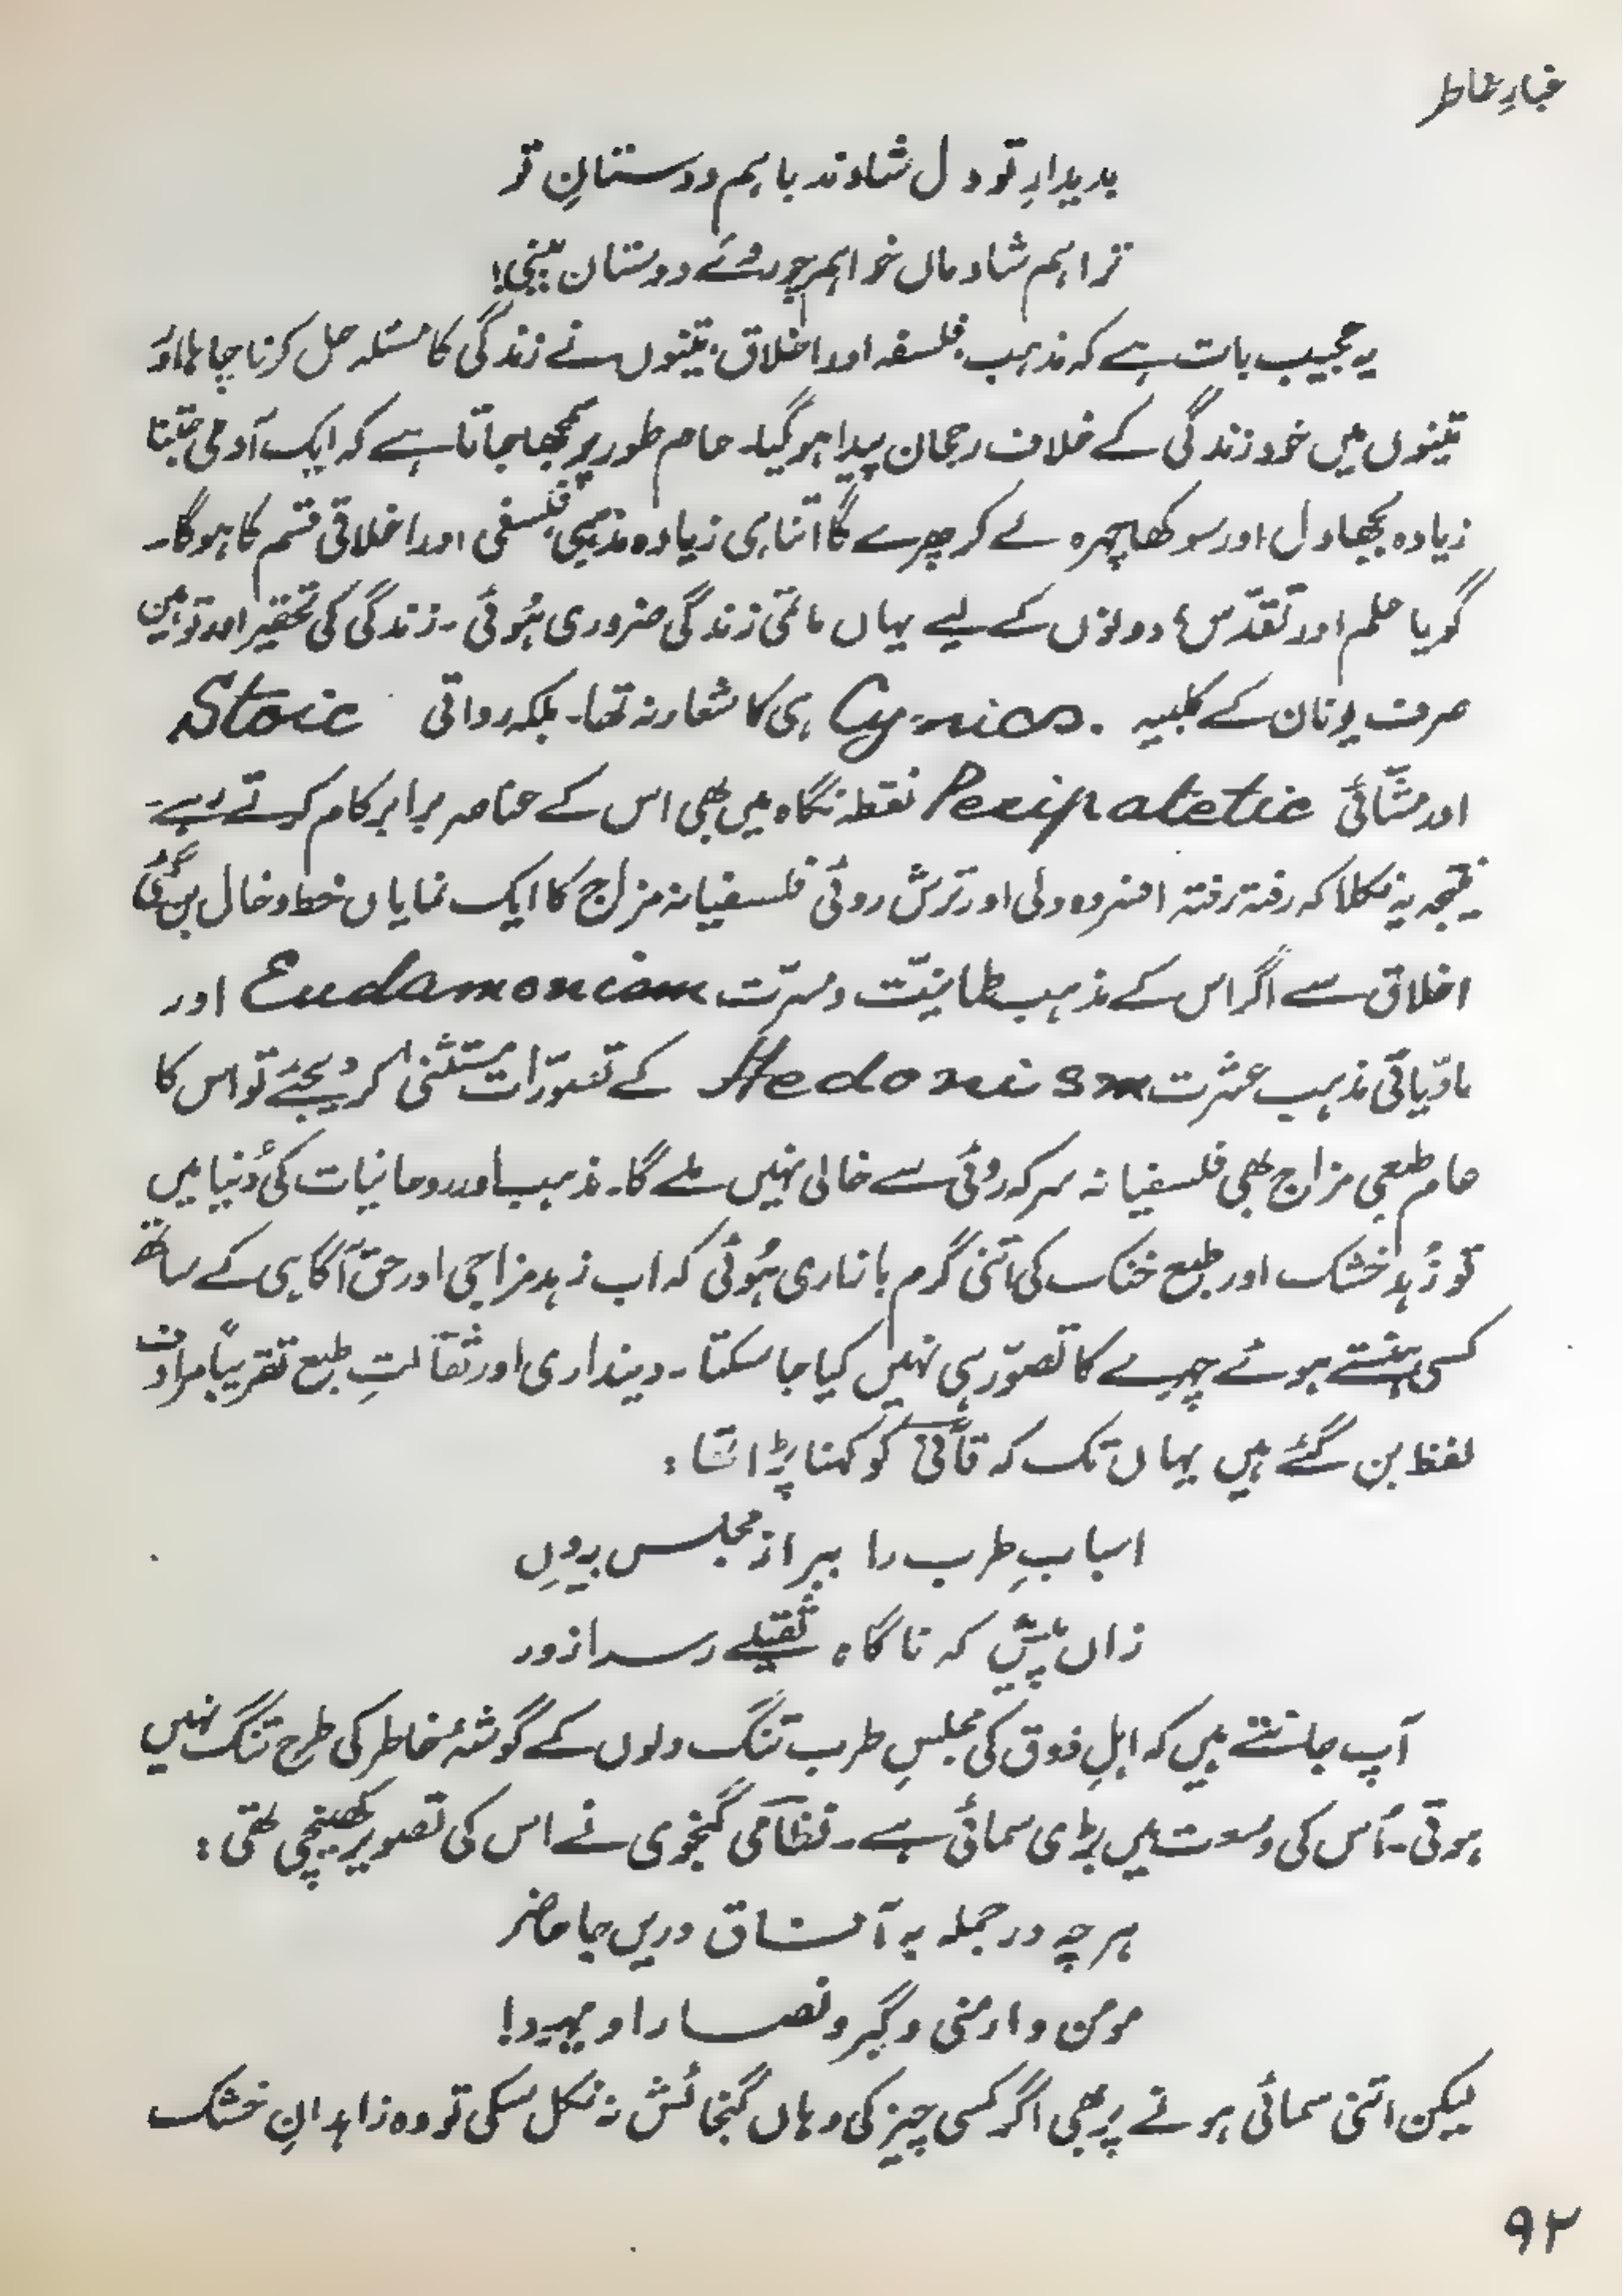 غبارِ خاطر
بدیدارِ تو دل شادند باہم دوستانِ تو
ترا ہم شادماں خواہم چو روئے دوستان بینی!
یہ عجیب بات ہے کہ مذہب، فلسفہ اور اخلاق، تینوں نے زندگی کا مسئلہ حل کرنا چاہا اور
تینوں میں خود زندگی کے خلاف رجحان پیدا ہوگیا۔ عام طور پر سمجھا جاتا ہے کہ ایک آدمی جتنا
زیادہ بجھا دل اور سوکھا چہرہ لے کر پھرے گا اتنا ہی زیادہ مذہبی، فلسفی اور اخلاقی قسم کا ہوگا۔
گویا علم اور تقدّس، دونوں کے لیے یہاں ماتمی زندگی ضروری ہُوئی۔ زندگی کی تحقیر اور توہین
صرف یونان کے کلبیہ Cynics. ہی کا شعار نہ تھا۔ بلکہ رواقی Stoic
اور مشّائی Peripatetic نقطہ نگاہ میں بھی اس کے عناصر برابر کام کرتے رہے۔
نتیجہ یہ نکلا کہ رفتہ رفتہ افسردہ دلی اور ترش روئی فلسفیانہ مزاج کا ایک نمایاں خط و خال بن گئی
اخلاق سے اگر اس کے مذہب طمانیّت و مسرّت Eudamonism اور
مادّیاتی مذہب عشرت Hedonism کے تصوّرات مستثنیٰ کر دیجئے تو اس کا
عام طبعی مزاج بھی فلسفیانہ سرکہ روئی سے خالی نہیں ملے گا۔ مذہب اور روحانیات کی دُنیا میں
تو زُہد خشک اور طبع خنک کی اتنی گرم بازاری ہُوئی کہ اب زہد مزاجی اور حق آگاہی کے ساتھ
کسی ہنستے ہوئے چہرے کا تصوّر ہی نہیں کیا جا سکتا۔ دینداری اور ثقالتِ طبع تقریباً مرادف
لفظ بن گئے ہیں یہاں تک کہ قاآنی کو کہنا پڑا تھا :
اسبابِ طرب را ببر از مجلس بیروں
زاں پیش کہ ناگاہ ثقیلے رسد از در
آپ جانتے ہیں کہ اہلِ ذوق کی مجلسِ طرب تنگ دلوں کے گوشۂ خاطر کی طرح تنگ نہیں
ہوتی۔ اُس کی وسعت میں بڑی سمائی ہے۔ نظامی گنجوی نے اس کی تصویر کھینچی تھی :
ہر چہ در جملہ بہ آفاق دریں جا حاضر
مومن و ارمنی و گبر و نصارا و یہود!
لیکن اتنی سمائی ہونے پر بھی اگر کسی چیز کی وہاں گنجائش نہ نکل سکی تو وہ زاہدانِ خشک
۹۲